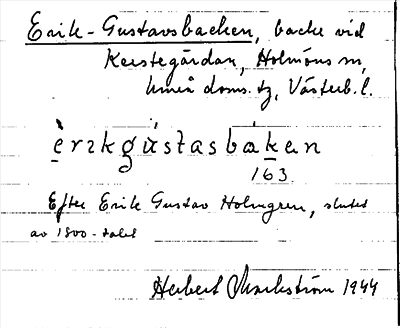 Erik-Gustavsbacken, backe vid
Kerstegårdan, Holmöns sn,
Umeå doms. tg, Västerb. l.
èrɪkgùstasbàkan
163.
Efter Erik Gustav Holmgren, slutet
av 1800-talet
Herbert Markström 1944